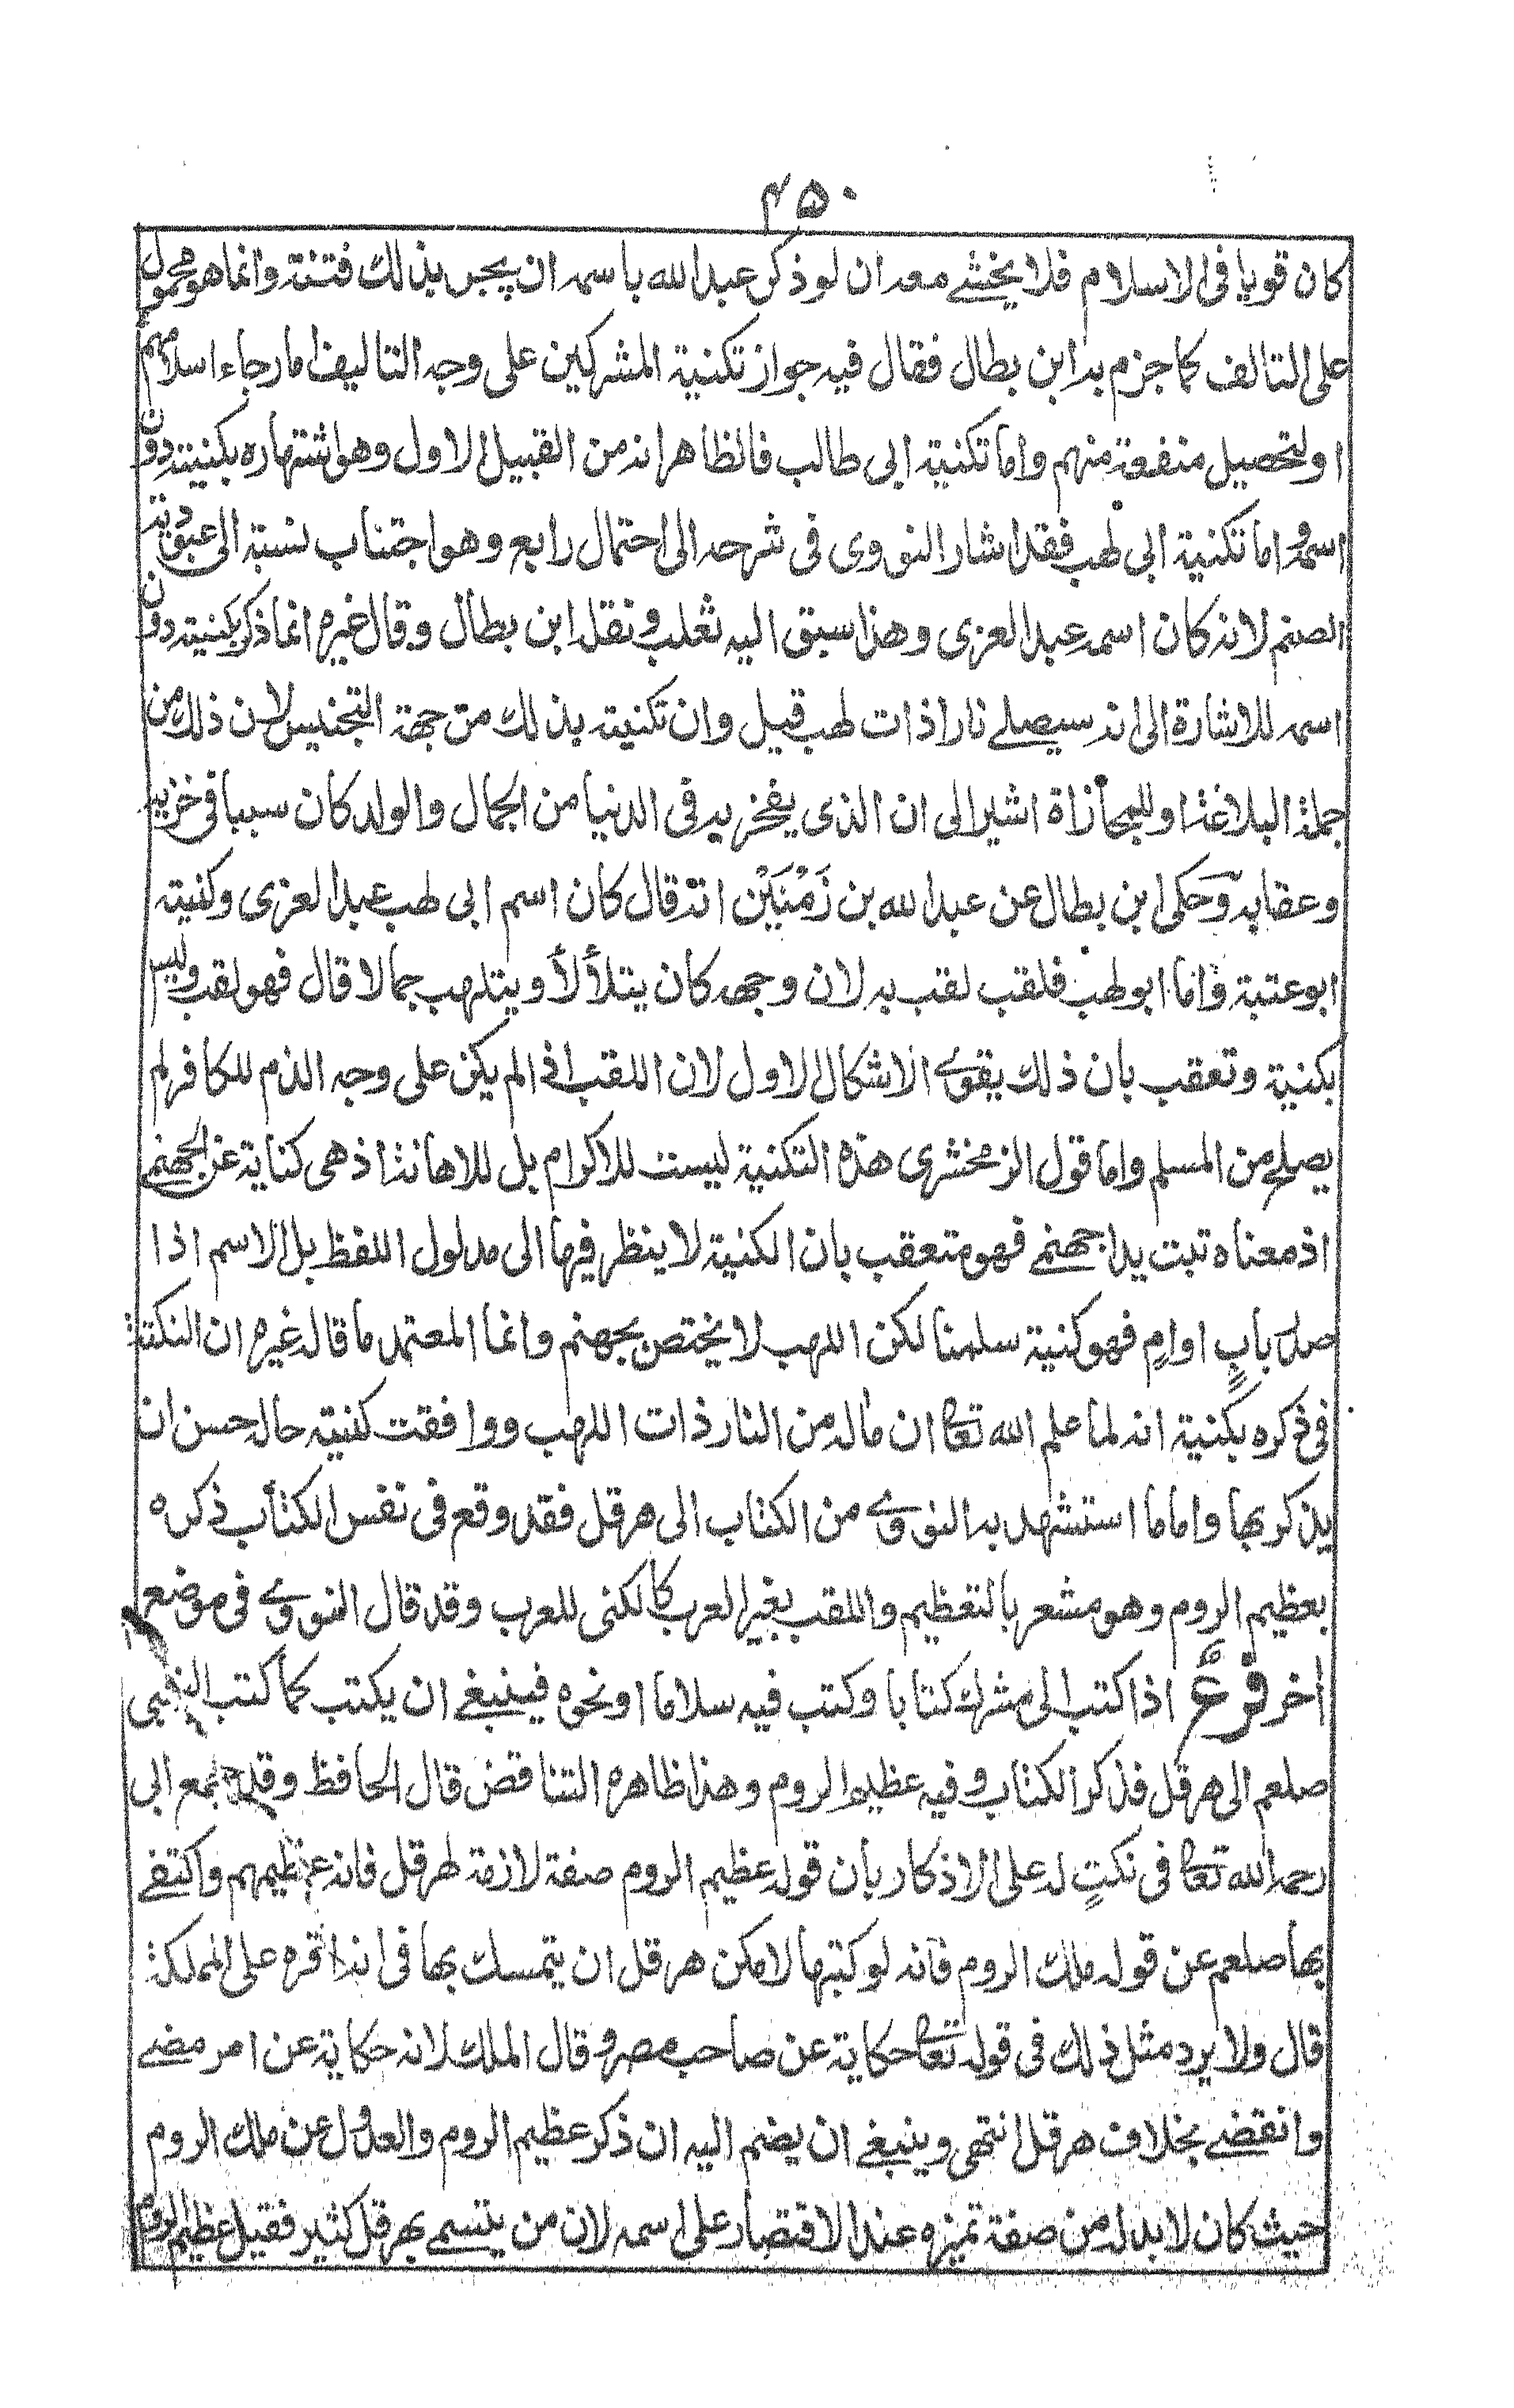 ۴۵۰
كان قويا فى الاسلام فلا يخشے معه ان لو ذكر عبد الله باسمه ان يجر بذلك فتنة وانما هو محمول
على التالف كما جزم به ابن بطال فقال فيه جواز تكنية المشركين على وجه التاليف اما رجاء اسلامهم
او لتحصيل منفعة منهم واما تكنية ابى طالب فالظاهر انه من القبيل الاول وهو اشتهاره بكنيته دون
اسمه واما تكنية ابى لهب فقد اشار النووى فى شرحه الى احتمال رابع وهو اجتناب نسبته الى عبودية
الصنم لانه كان اسمه عبد العزى وهذا سبق اليه ثعلب ونقله ابن بطال وقال غيره انما ذكر بكنيته دون
اسمه للاشارة الى انه سيصلے نارا ذات لهب قيل وان تكنيته بذلك من جهة التجنيس لان ذلك من
جملة البلاغة او للمجازاة اشير الى ان الذى يفخر به فى الدنيا من الجمال والولد كان سببا فى خزيه
وعقابه وحكى ابن بطال عن عبد الله بن زَمْنَيْن انه قال كان اسم ابى لهب عبد العزى وكنيته
ابو عتبة واما ابو لهب فلقب لقب به لان وجهه كان يتلألأ ويتلهب جمالا قال فهو لقب وليس
بكنية وتعقب بان ذلك يقوے الاشكال الاول لان اللقب اذا لم يكن على وجه الذم للكافر لم
يصلح من المسلم واما قول الزمخشرى هذه التكنية ليست للاكرام بل للاهانة اذ هى كناية عن الجهنمے
اذ معناه تبت يدا جهنمے فهو متعقب بان الكنية لا ينظر فيها الى مدلول اللفظ بل الاسم اذا
صدر بابٍ او امٍ فهو كنية سلمنا لكن اللهب لا يختص بجهنم وانما المعتمد ما قاله غيره ان النكتة
فى ذكره بكنية انه لما علم الله تعا ان ماله من النار ذات اللهب ووافقت كنيته حاله حسن ان
يذكر بها واما ما استشهد به النووے من الكتاب الى هرقل فقد وقع فى نفس الكتاب ذكره
بعظيم الروم وهو مشعر بالتعظيم واللقب بغير العرب كالكنى للعرب وقد قال النووے فى موضع
اخر فرع اذا كتب الى مشرك كتابا وكتب فيه سلاما او نحوه فينبغے ان يكتب كما كتب النبى
صلعم الى هرقل فذكر الكتاب وفيه عظيم الروم وهذا ظاهره التناقض قال الحافظ وقد جمع ابى
رحمه الله تعا فى نكتٍ له على الاذكار بان قوله عظيم الروم صفة لازمة لهرقل فانه عظيمهم واكتفے
بها صلعم عن قوله ملك الروم فانه لو كتبها لامكن هرقل ان يتمسك بها فى انه اقره على المملكة
قال ولا يرد مثل ذلك فى قوله تعا حكاية عن صاحب مصر وقال الملك لانه حكاية عن امر مضے
وانقضے بخلاف هرقل انتهى وينبغے ان يضم اليه ان ذكر عظيم الروم والعدول عن ملك الروم
حيث كان لا بد له من صفة تميزه عند الاقتصار على اسمه لان من يتسمے بهرقل كثير فقيل عظيم الروم